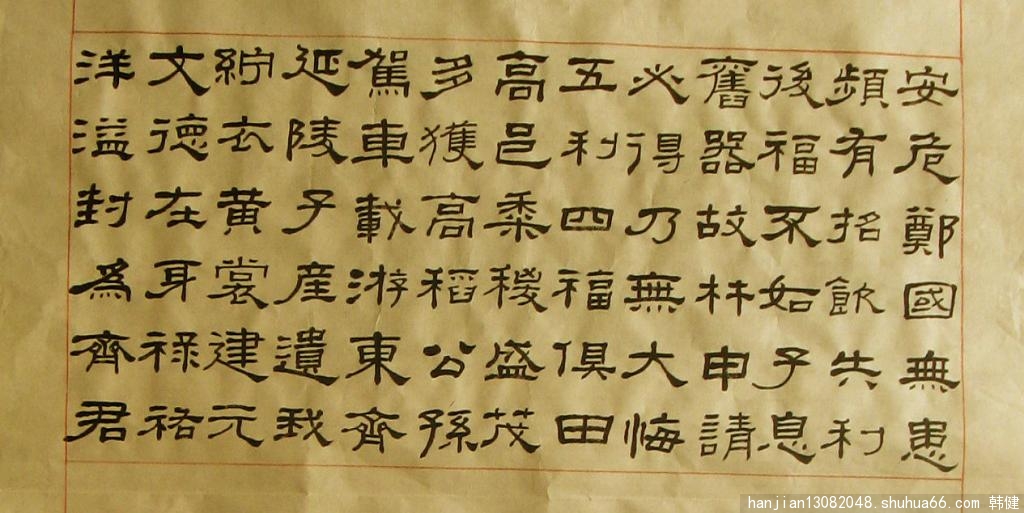 安危鄭國無患
頻有招飲失利
後福不如子息
舊器故林申請
必得乃無大悔
五利四福俱田
高邑黍稷盛茂
多獲高稻公孫
駕車載游東齊
延陵子產遺我
紵衣黃裳建元
文德在耳祿祐
洋溢封為齊君
hanjian13082048.shuhua66.com 韩健